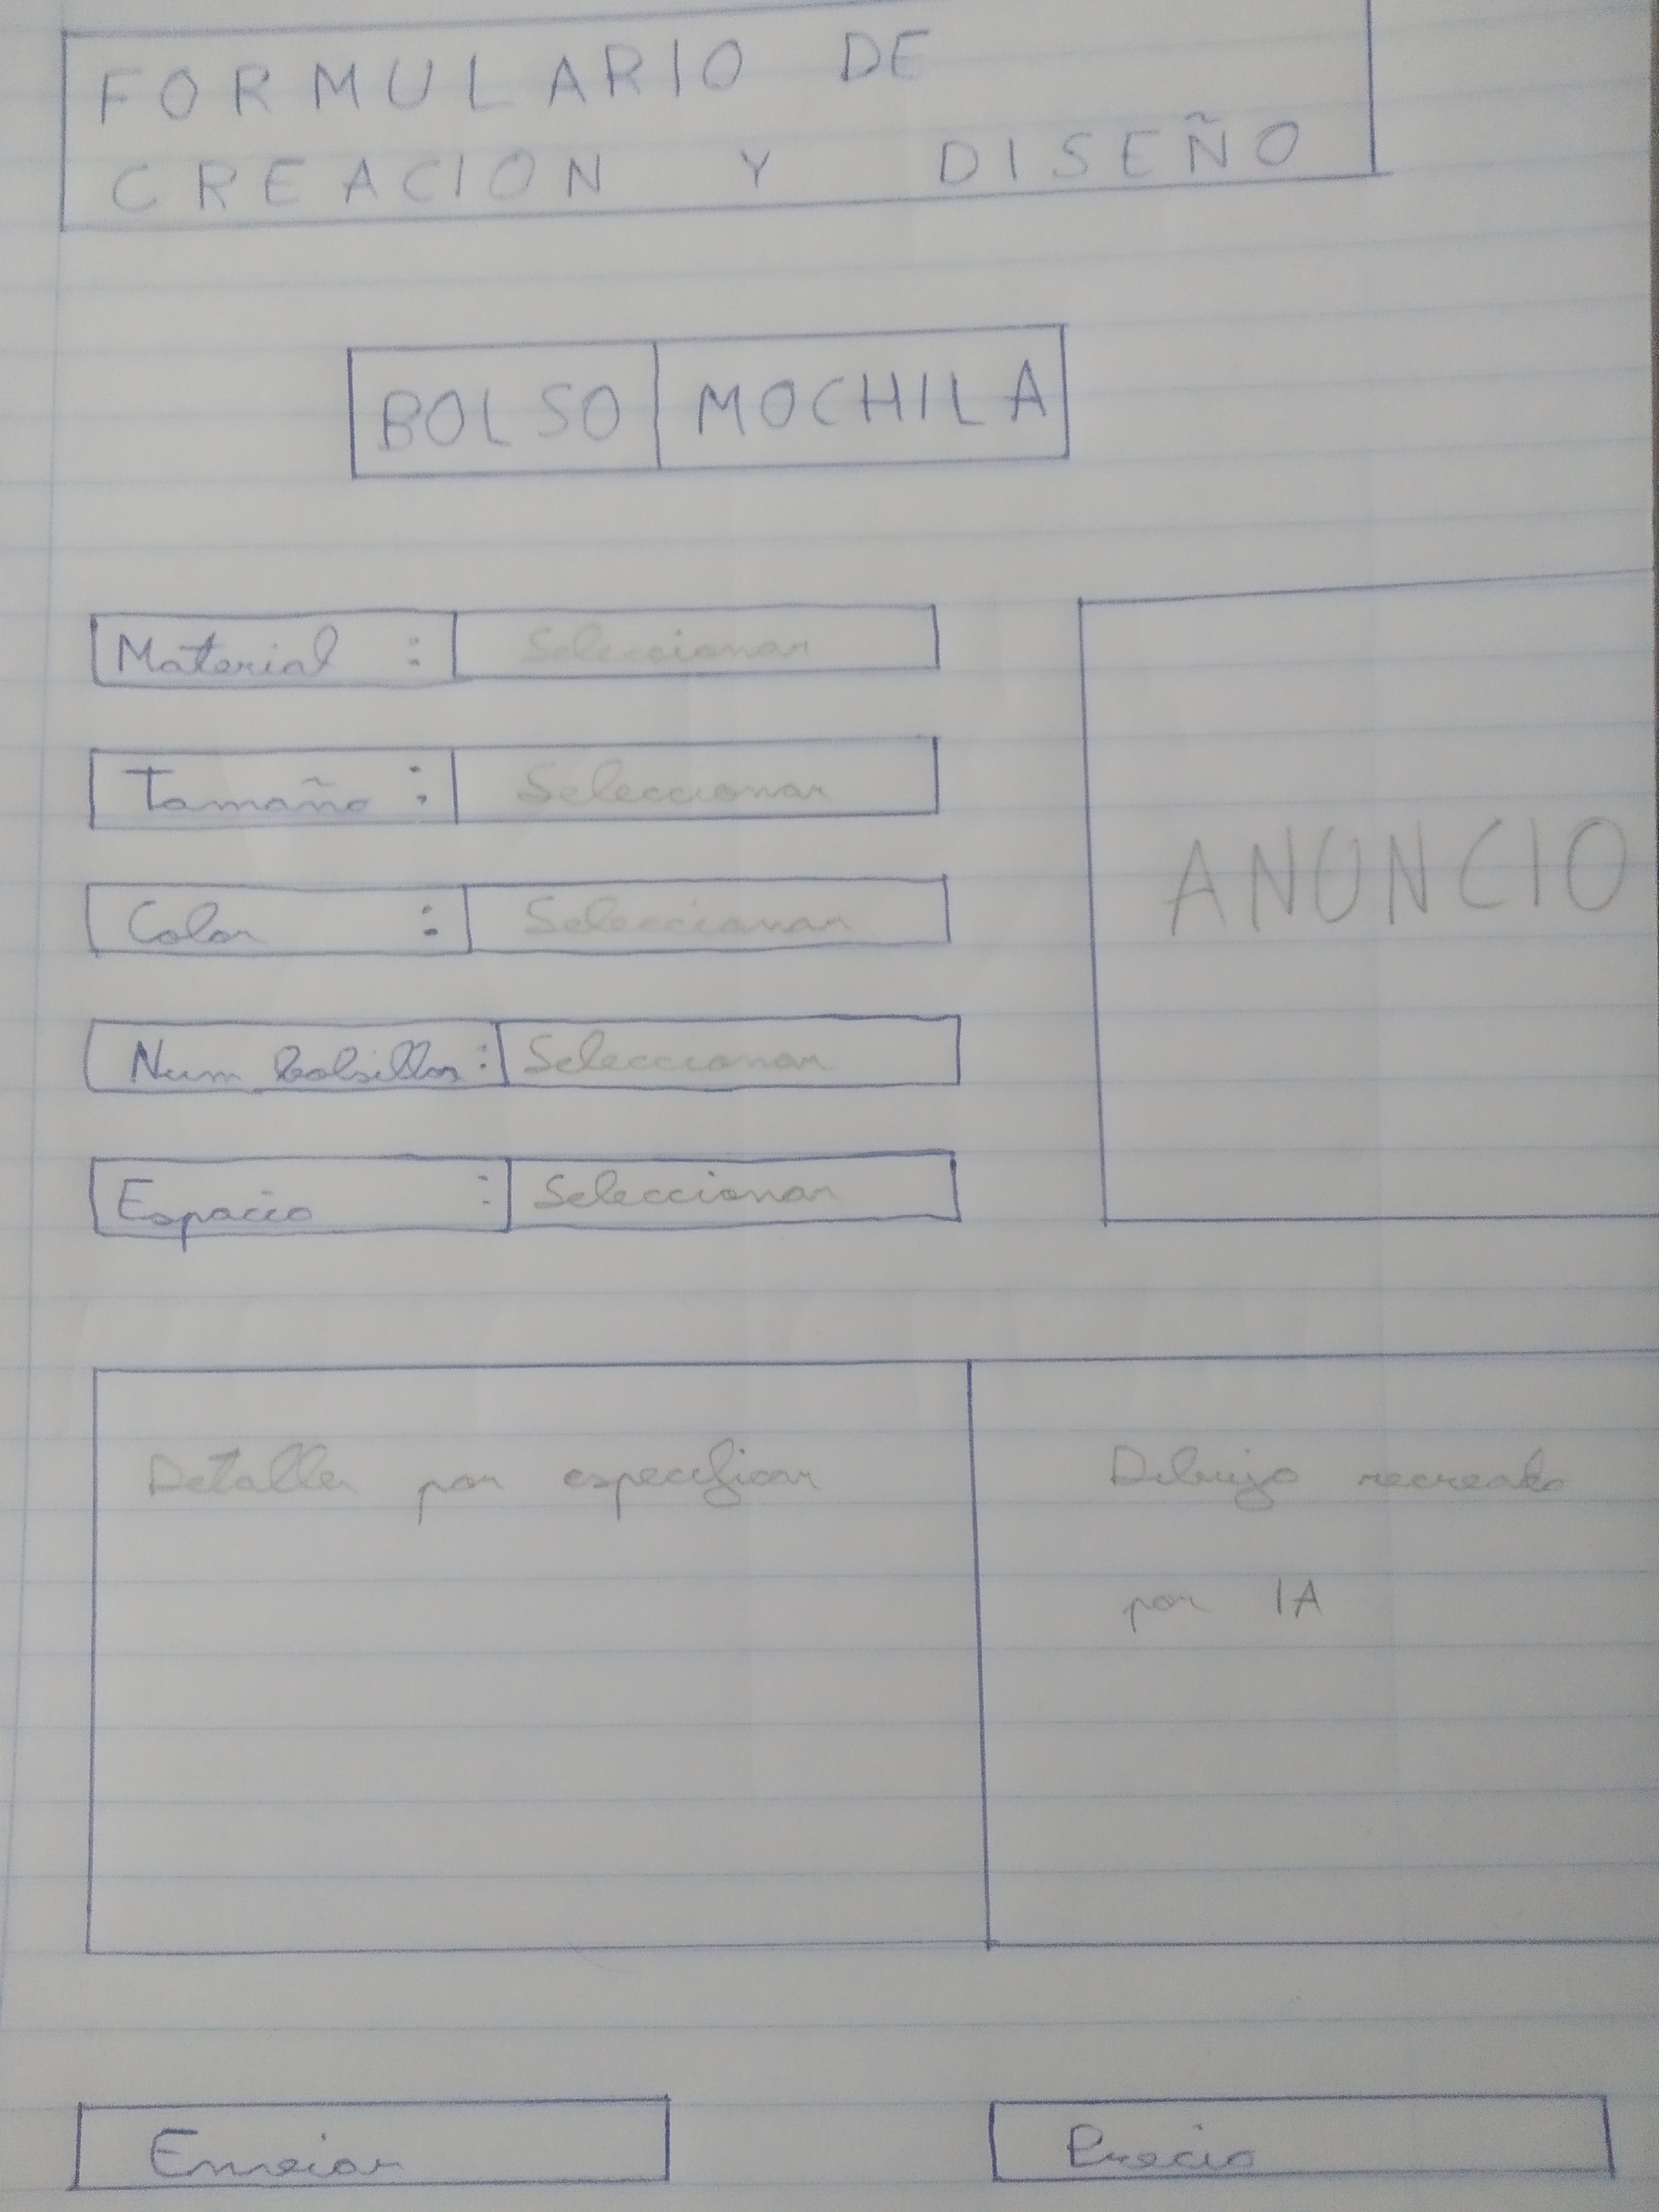 FORMULARIO DE
CREACION Y DISEÑO
BOLSO MOCHILA
Material : Seleccionar
Tamaño : Seleccionar
Color : Seleccionar
ANUNCIO
Num bolsillos : Seleccionar
Espacio : Seleccionar
Detalles por especificar
Dibujo recreado
por IA
Enviar
Precio